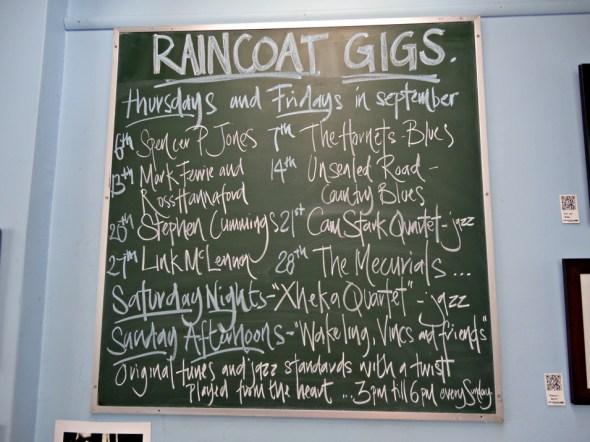 RAINCOAT GIGS.
Thursdays and Fridays in september
6th Spencer P Jones 7th The Hornets - Blues
13th Mark Ferrie and 14th Unsealed Road -
Ross Hannaford Country Blues
20th Stephen Cummings 21st Cam Stark Quartet - jazz
27th Link McLennan 28th The Mecurials ...
Saturday Nights - "Xheka Quartet" - jazz
Sunday Afternoons - "Wakeling, Vincs and friends"
Original tunes and jazz standards with a twist
played from the heart ... 3pm till 6pm every Sunday